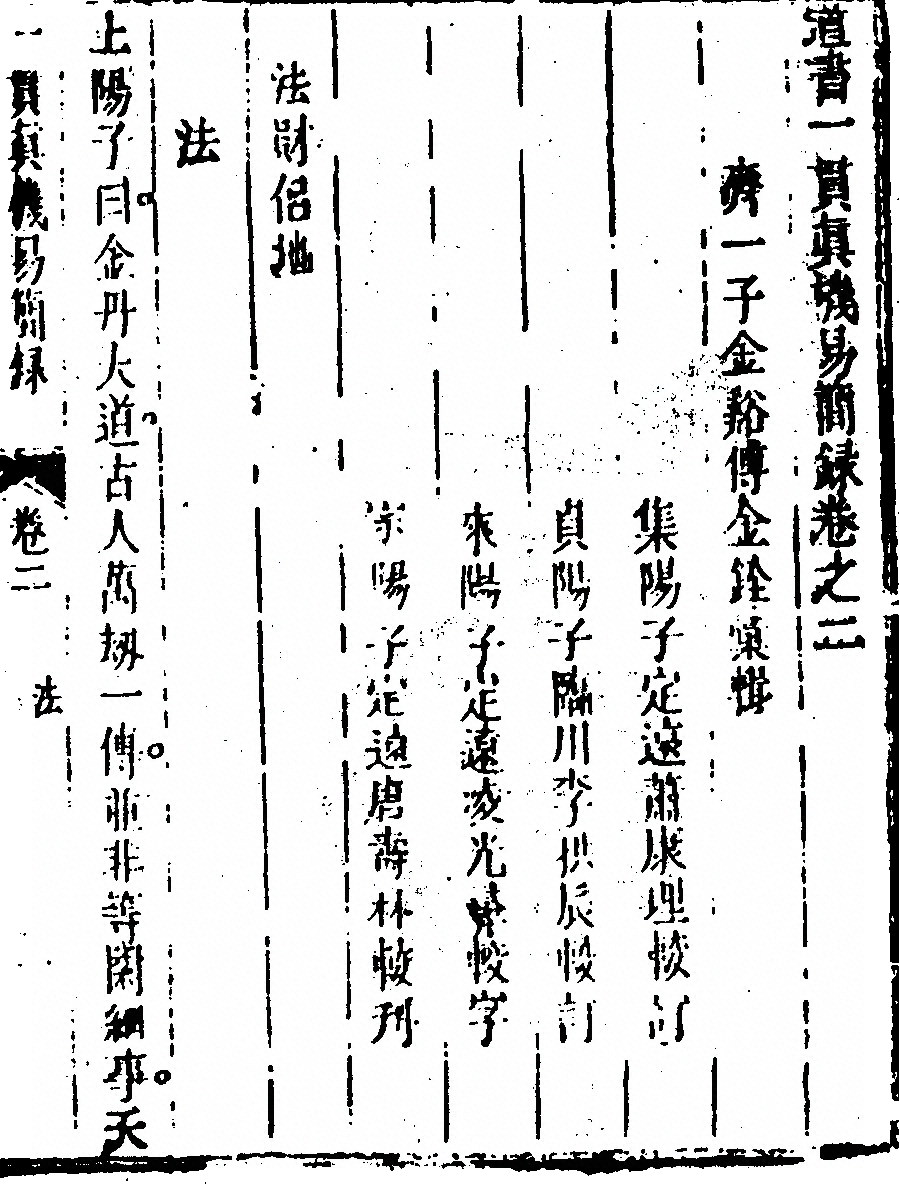 道書一貫真機易簡錄卷之二
濟一子金谿傅金銓彙輯
集陽子定遠蕭康理校訂
貞陽子臨川李拱辰校訂
來陽子定遠凌光校字
宗陽子定遠唐壽林校刋
法財侶地
法
上陽子曰金丹大道古人萬刼一傳並非等閑細事天
一貫真機易簡錄
卷二
法